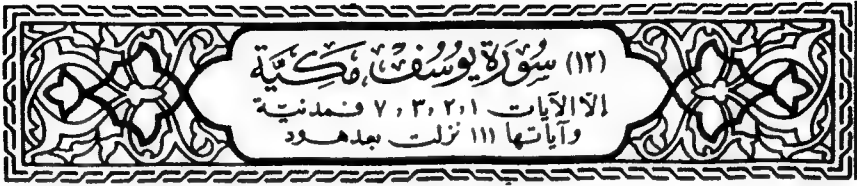 (١٢) سُورَةُ يُوسُفْ مَكِيَّة
إلّا الآيات ٧،٣،٢،١ فمدنيّة
وآياتها ١١١ نزلت بعد هود